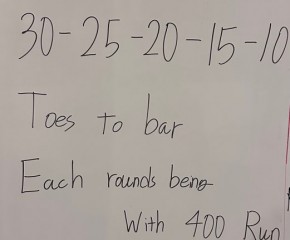 30-25-20-15-10
Toes to bar
Each rounds being
With 400 Run